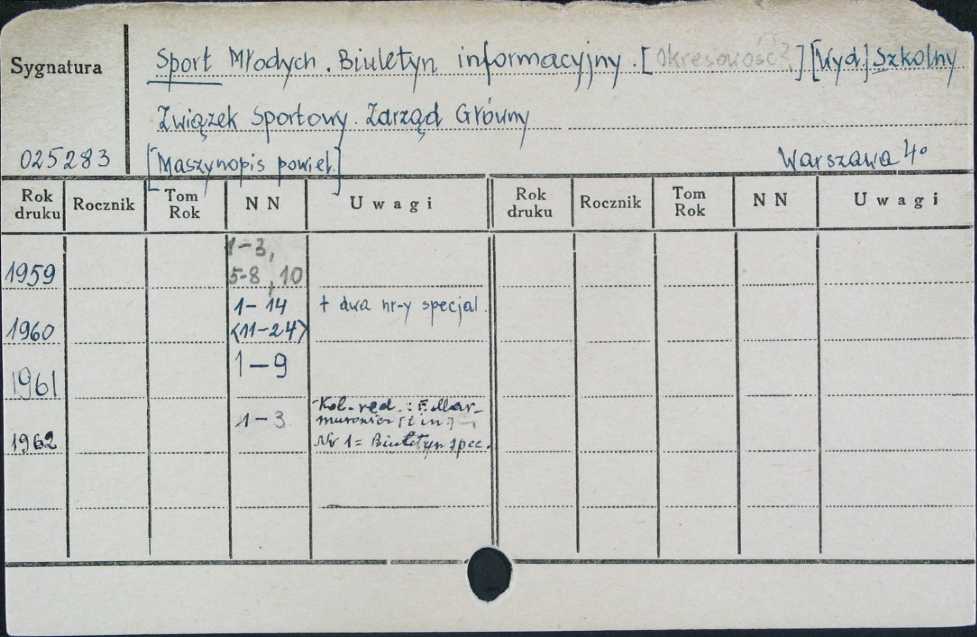 Sygnatura
Sport Młodych. Biuletyn informacyjny. [Okresowość?] [Wyd.] Szkolny
Związek Sportowy. Zarząd Główny
025283 [Maszynopis powiel.] Warszawa 4°
Rok druku Rocznik Tom Rok N N Uwagi Rok druku Rocznik Tom Rok N N Uwagi
1959 1-3, 5-8, 10
1960 1-14 <11-24> + dwa nr-y specjal.
1961 1-9
1962 1-3 Kol. red.: [i in.] Nr 1 = Biuletyn spec.